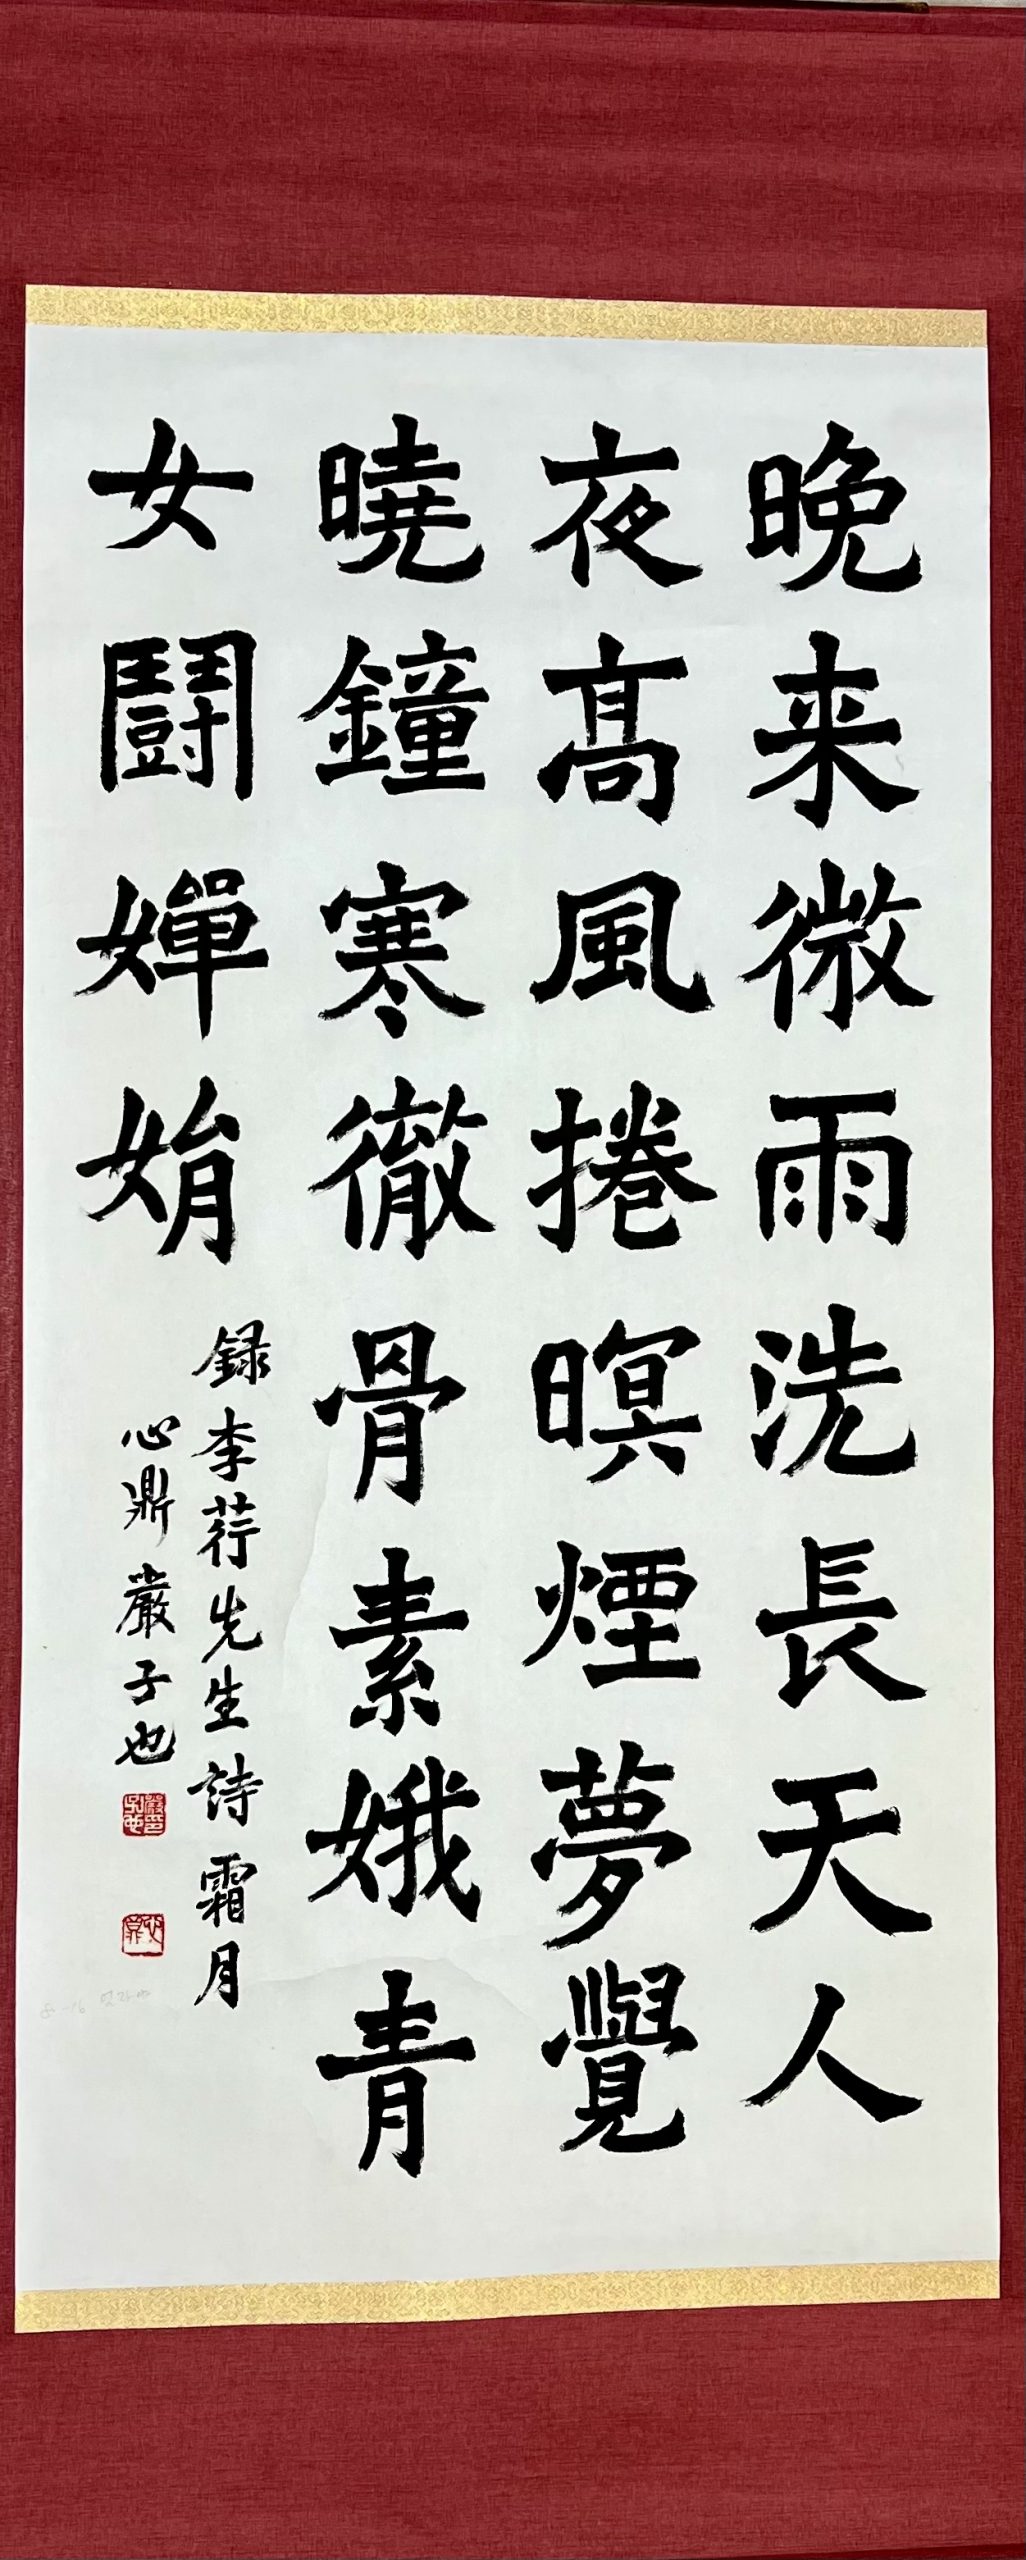 晚来微雨洗長天人
夜髙風捲暝煙夢覺
曉鐘寒徹骨素娥青
女鬪嬋娟
録李荇先生詩 霜月
心鼎 嚴子也